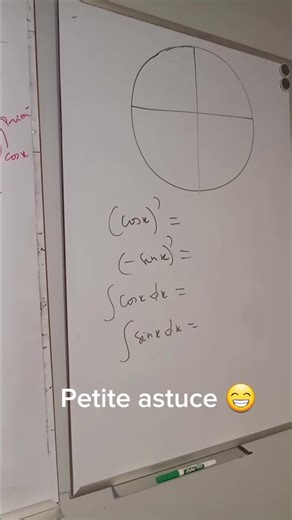 cosx
(cosx)' =
(-sinx)' =
∫ cosx dx =
∫ sinx dx =
Petite astuce 😁